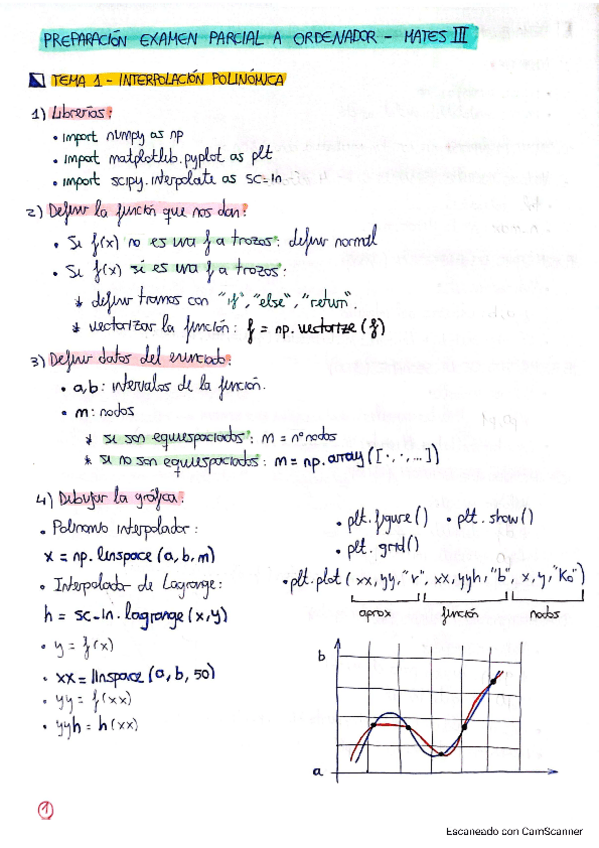 PREPARACIÓN EXAMEN PARCIAL A ORDENADOR - MATES III
TEMA 1 - INTERPOLACIÓN POLINÓMICA
1) Librerías:
• import numpy as np
• import matplotlib.pyplot as plt
• import scipy.interpolate as sc_in
2) Definir la función que nos dan:
• Si f(x) no es una f a trozos: definir normal
• Si f(x) sí es una f a trozos:
* definir tramos con "if", "else", "return".
* vectorizar la función: f = np.vectorize(f)
3) Definir datos del enunciado:
• a,b: intervalos de la función.
• m: nodos
* si son equiespaciados: m = nº nodos
* si no son equiespaciados: m = np.array([·,·,...])
4) Dibujar la gráfica:
• Polinomio interpolador:
x = np.linspace(a,b,m)
• Interpolador de Lagrange:
h = sc_in.lagrange(x,y)
• y = f(x)
• xx = linspace(a,b,50)
• yy = f(xx)
• yyh = h(xx)
• plt.figure() • plt.show()
• plt.grid()
• plt.plot(xx,yy,"r", xx,yyh,"b", x,y,"Ko")
aprox función nodos
b
a
1
Escaneado con CamScanner